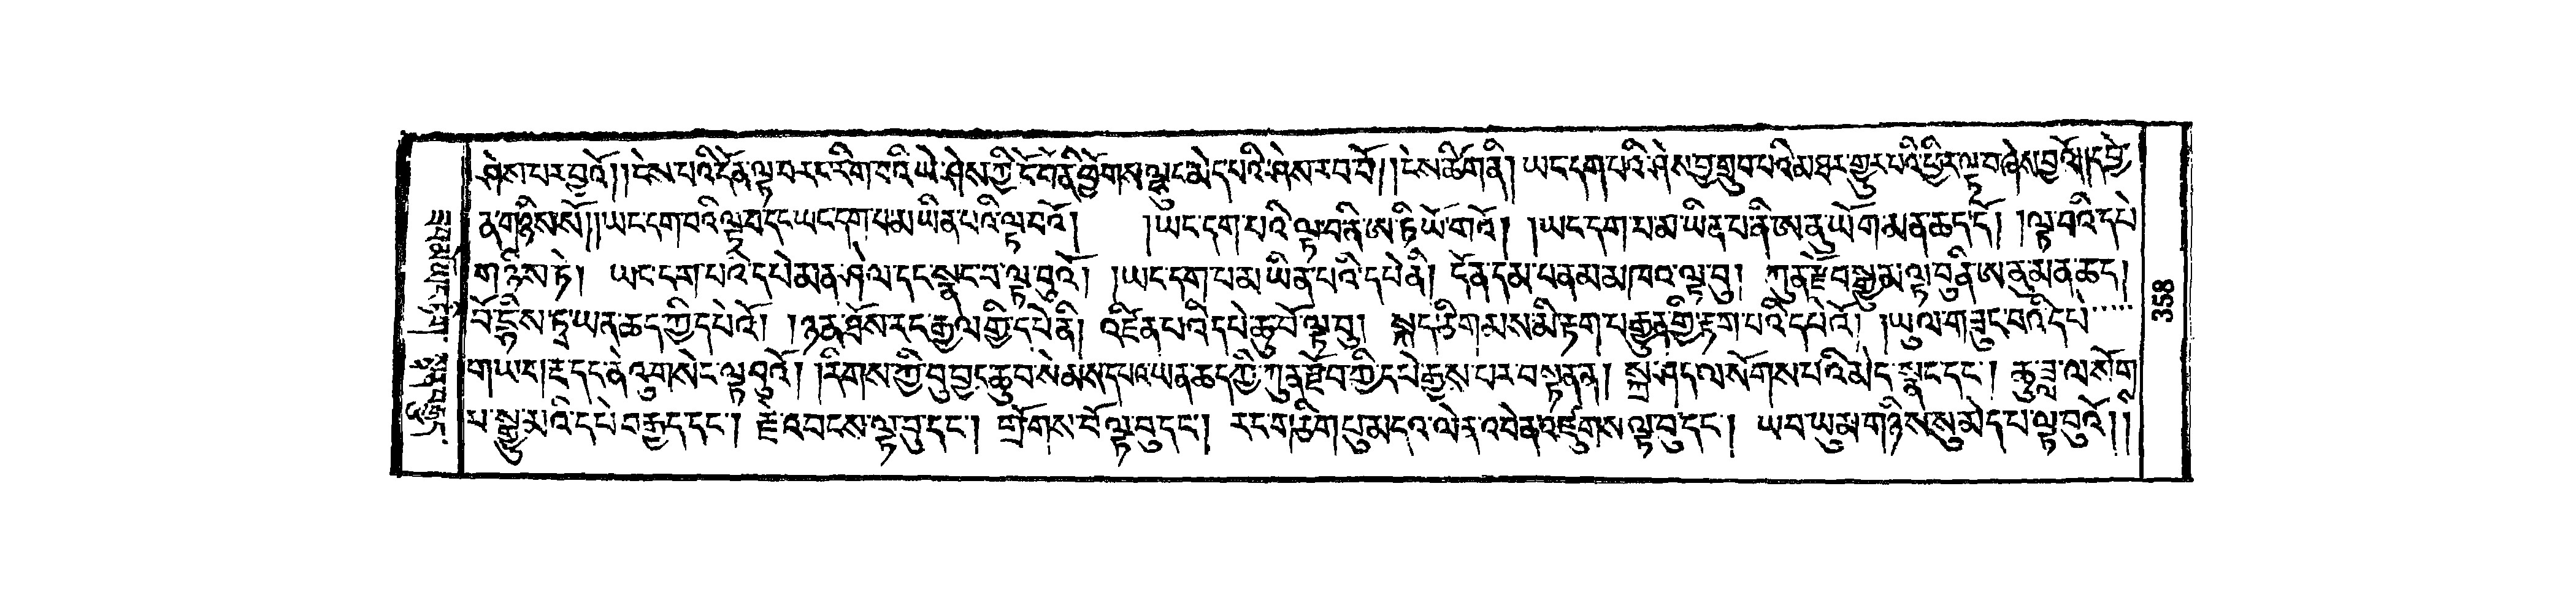 ཤེས་པར་བྱའོ།།ངེས་པའི་དོན་ལྟ་བ་རང་རིག་པའི་ཡེ་ཤེས་ཀྱི་ངོ་བོ་ནི་ཕྱོགས་ལྷུང་མེད་པའི་ཤེས་རབ་བོ།།ངེས་ཚིག་ནི། ཡང་དག་པའི་ཤེས་བྱ་གྲུབ་པའི་མཐར་གྱུར་པའི་ཕྱིར་ལྟ་བ་ཞེས་བྱའོ།།དབྱེ་
ན་གཉིས་སོ།།ཡང་དག་པའི་ལྟ་བ་དང་ཡང་དག་པ་མ་ཡིན་པའི་ལྟ་བའོ། །ཡང་དག་པའི་ལྟ་བ་ནི་ཨ་ཏི་ཡོ་གའོ། །ཡང་དག་པ་མ་ཡིན་པ་ནི་ཨ་ནུ་ཡོ་ག་མན་ཆད་དོ། །ལྟ་བའི་དཔེ་
གཉིས་ཏེ། ཡང་དག་པའི་དཔེ་མན་ཤེལ་དང་སྣང་བ་ལྟ་བུའོ། །ཡང་དག་པ་མ་ཡིན་པའི་དཔེ་ནི། དོན་དམ་པ་ནམ་མཁའ་ལྟ་བུ། ཀུན་རྫོབ་སྒྱུ་མ་ལྟ་བུ་ནི་ཨ་ནུ་མན་ཆད།
པོ་ཏྟི་ས་ཏྭ་ཡན་ཆད་ཀྱི་དཔེའོ། །ཉན་ཐོས་རང་རྒྱལ་གྱི་དཔེ་ནི། འཛིན་པའི་དཔེ་ཆུ་བོ་ལྟ་བུ། སྐད་ཅིག་མས་མི་རྟག་པ་རྒྱུན་གྱི་རྟག་པའི་དཔེའོ། །ཡུལ་གཟུང་བའི་དཔེ་
་རྡོ་དང་ནེའུ་གསེང་ལྟ་བུའོ། །རིགས་ཀྱི་བུ་བྱང་ཆུབ་སེམས་དཔའ་ཡན་ཆད་ཀྱི་ཀུན་རྫོབ་ཀྱི་དཔེ་རྒྱས་པར་བསྟན་ན། སྐྲ་ཤད་ལ་སོགས་པའི་མེད་སྣང་དང་། ཆུ་ཟླ་ལ་སོགས་
པ་སྒྱུ་མའི་དཔེ་བརྒྱད་དང་། རྗེ་འབངས་ལྟ་བུ་དང་། གྲོགས་པོ་ལྟ་བུ་དང་། རང་གཅིག་པུ་མདའ་ལེན་འབེན་འཛུགས་ལྟ་བུ་དང་། ཡབ་ཡུམ་གཉིས་སུ་མེད་པ་ལྟ་བུའོ།།
358